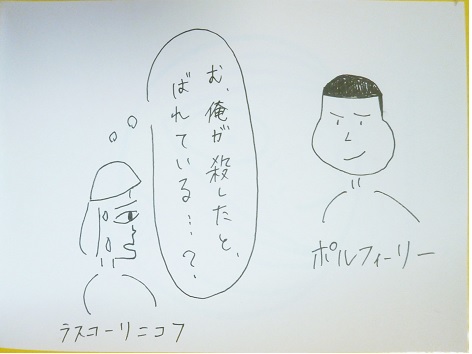 む、俺が殺したと、
ばれている…？
ポルフィーリー
ラスコーリニコフ